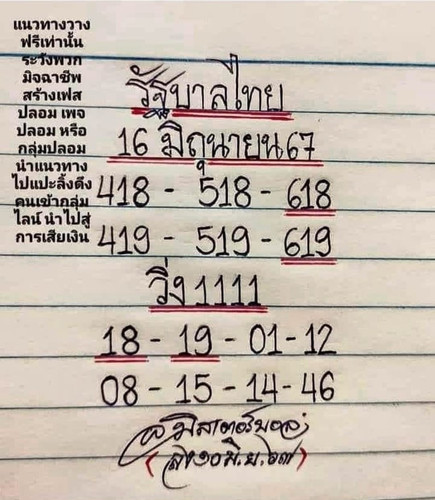 แนวทางวาง
ฟรีเท่านั้น
ระวังพวก
มิจฉาชีพ
สร้างเฟส
ปลอม เพจ
ปลอม หรือ
กลุ่มปลอม
นำแนวทาง
ไปแปะลิ้งดึง
คนเข้ากลุ่ม
ไลน์ นำไปสู่
การเสียเงิน
รัฐบาลไทย
16 มิถุนายน 67
418 - 518 - 618
419 - 519 - 619
วิ่ง 1111
18 - 19 - 01 - 12
08 - 15 - 14 - 46